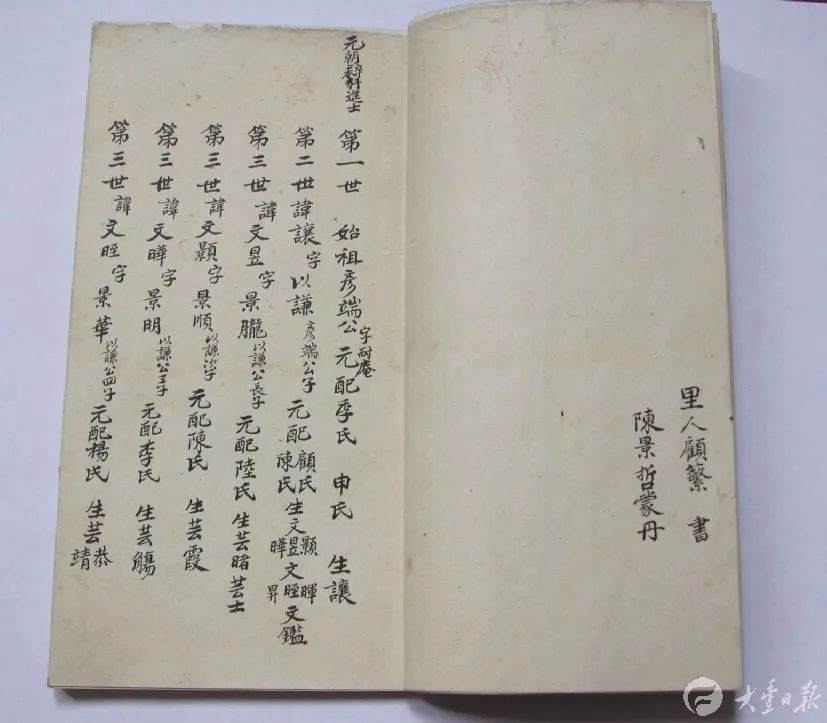 里人顧蘩書
陳景哲蒙丹
元朝辛未科進士
第一世 始祖彥端公字耐庵元配季氏 申氏 生讓
第二世諱讓字以謙彥端公子元配顧氏陳氏生文昱顥曄文晊暉昇文鑑
第三世諱文昱字景朧以謙公長子元配陸氏 生芸曙芸士
第三世諱文顥字景順以謙次子元配陳氏 生芸霞
第三世諱文曄字景明以謙公三子元配李氏 生芸觴
第三世諱文晊字景華以謙公四子元配楊氏 生芸恭靖
大豐日報